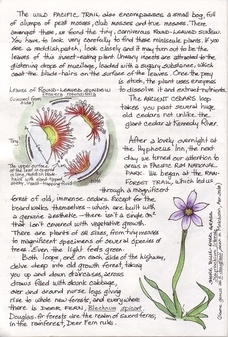 The WILD PACIFIC TRAIL also encompasses a small bog, full
of clumps of peat mosses, club mosses and true mosses. There
amongst these, we found the tiny, carnivorous ROUND-LEAVED SUNDEW.
You have to look very carefully to find these miniscule plants. If you
see a reddish patch, look closely and it may turn out to be the
leaves of this insect-eating plant. Unwary insects are attracted to the
glistening drops of mucilage, loaded with a sugary substance, which
coat the hairs on the surface of the leaves. Once the prey
is stuck, the plant uses enzymes
to dissolve it and extract nutrients.
Leaves of ROUND-LEAVED SUNDEW
Drosera rotundifolia
The ANCIENT CEDARS loop
takes you past several huge,
old cedars not unlike the
giant cedar at Kennedy River.
Tiny
The upper surface
of the leaf is covered
After a lovely overnight
at the Wyphastes Inn, the next
day we turned our attention to
areas in PACIFIC RIM NATIONAL
PARK. We began at the RAIN-
FOREST TRAIL, which led us
through a magnificent
forest of old, immense cedars. Except for the
boardwalks themselves - which are built with
a genuine aesthetic - there isn't a single
that isn't covered with vegetative growth.
There are plants of all sizes, from tiny mosses
to magnificent specimens of several species of
trees. Even the light feels green.
Both loops, one on each side of the highway,
delve deep into old growth forest, taking
you up and down staircases, across
draws filled with skunk cabbage,
over and around nurse logs giving
rise to whole new forests, and everywhere
there is DEER FERN, Blechnum spicant.
Douglas-fir forests use the realm of sword ferns;
in the rainforest, Deer Fern rules.